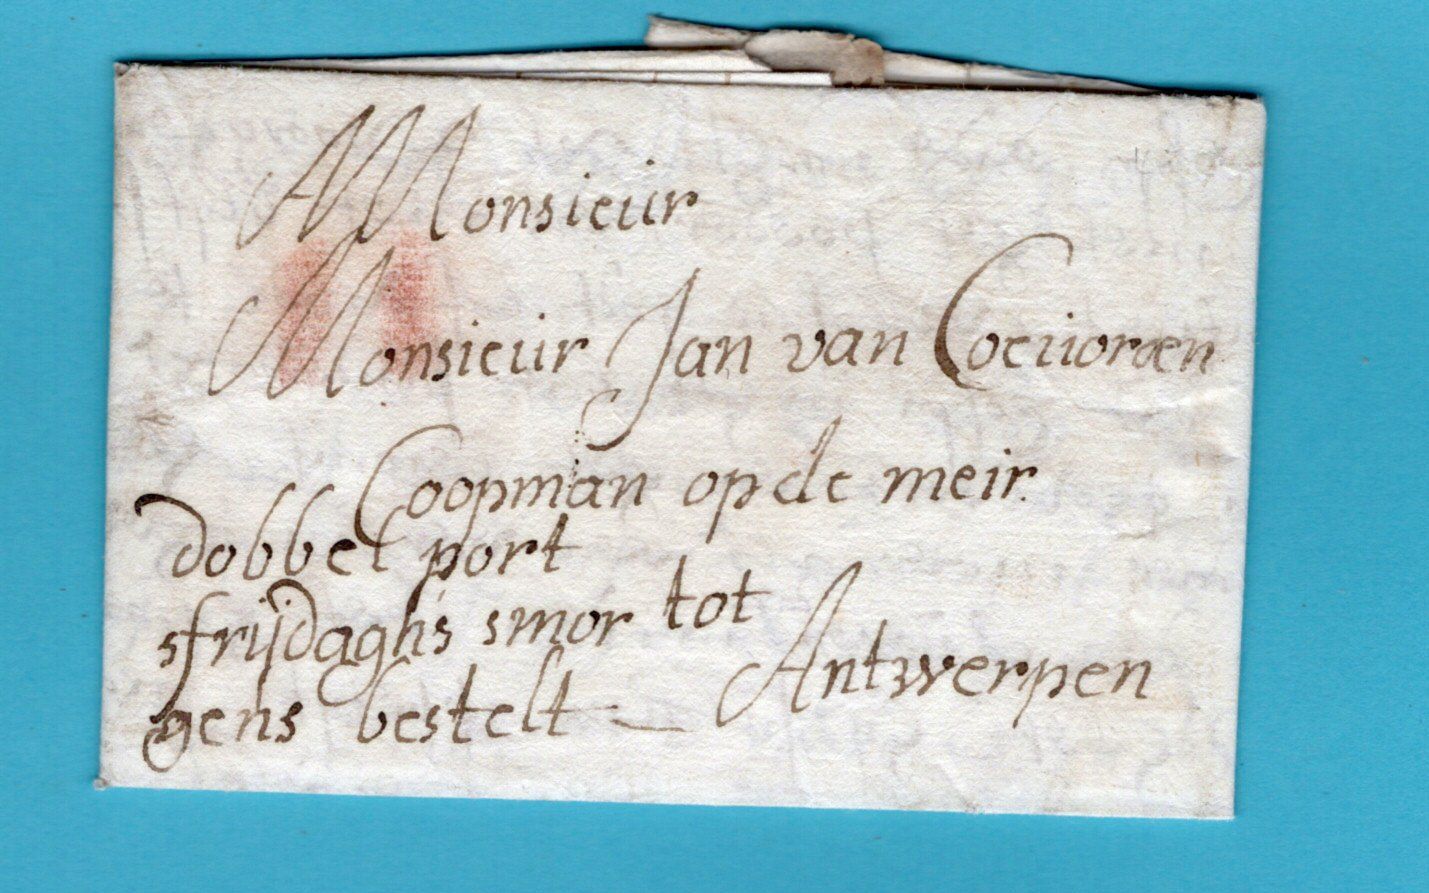 Monsieur
Monsieur Jan van Coeuorden
Coopman op de meir
dobbel port
sfrijdaghs smor tot
gens bestelt — Antwerpen